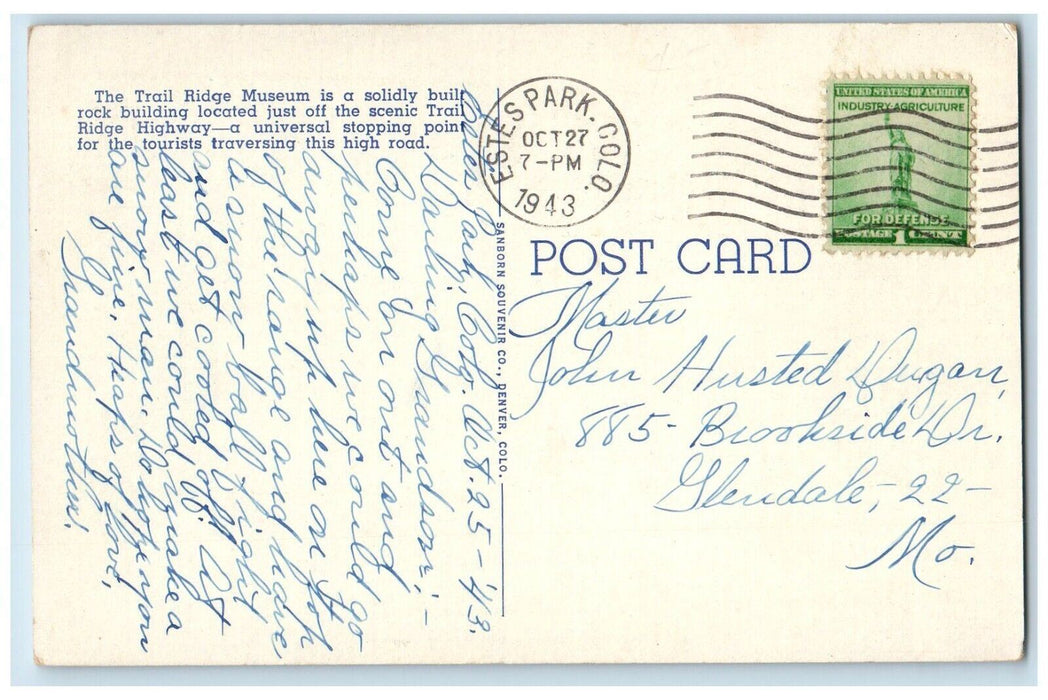 The Trail Ridge Museum is a solidly built
rock building located just off the scenic Trail
Ridge Highway—a universal stopping point
for the tourists traversing this high road.
ESTES PARK. COLO.
OCT 27
7-PM
1943
UNITED STATES OF AMERICA
INDUSTRY·AGRICULTURE
FOR DEFENSE
POSTAGE 1 CENT
POST CARD
SANBORN SOUVENIR CO., DENVER, COLO.
Estes Park, Colo. Oct. 25-'43.
Darling Grandson:-
Come on out and
perhaps we could go
away up here on top
of the range and have
a snow ball fight
and get cooled off. At
least we could make a
snow man. Do hope you
are fine. Heaps of love,
Grandmother.
Master
John Husted Dugan,
885- Brookside Dr.
Glendale,-22-
Mo.